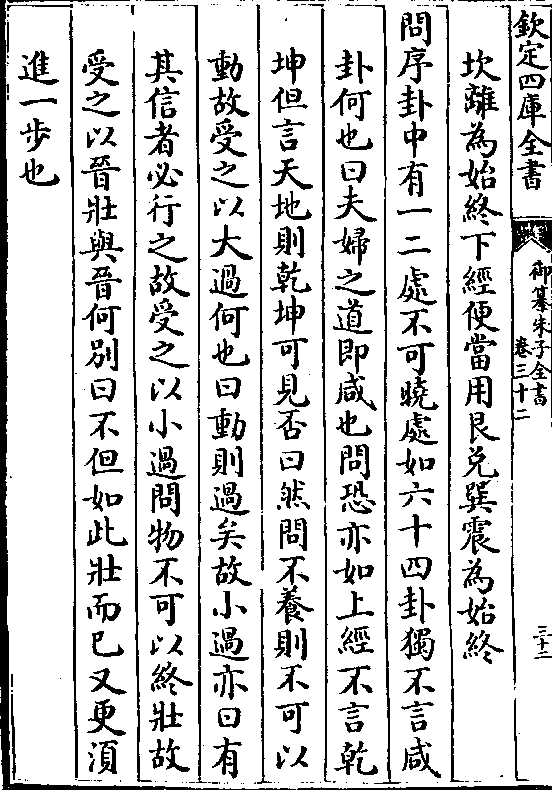 欽定四庫全書
御纂朱子全書
卷三十二
三十二
坎離為始終下經便當用艮兌巽震為始終
問序卦中有一二處不可曉處如六十四卦獨不言咸
卦何也曰夫婦之道即咸也問恐亦如上經不言乾
坤但言天地則乾坤可見否曰然問不養則不可以
動故受之以大過何也曰動則過矣故小過亦曰有
其信者必行之故受之以小過問物不可以終壯故
受之以晉壯與晉何別曰不但如此壯而已又更須
進一步也